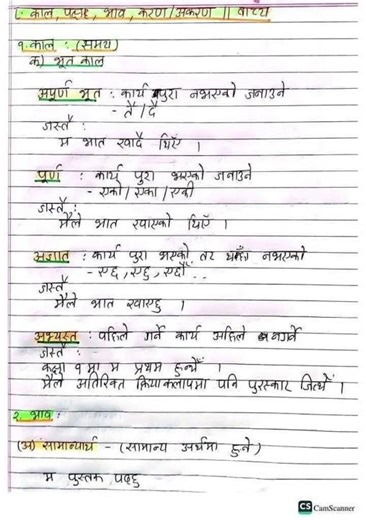 १. काल, पक्ष, भाव, करण/अकरण || वाच्य
१. काल : (समय)
क) भूत काल
अपूर्ण भूत : कार्य पुरा नभएको जनाउने
- तै / दै
जस्तै :
म भात खादै थिएँ ।
पूर्ण : कार्य पुरा भएको जनाउने
- एको / एका / एकी
जस्तै :
मैले भात खाएको थिएँ ।
अज्ञात : कार्य पुरा भएको तर थाहा नभएको
- एछ, एछु, एछौँ ..
जस्तै
मैले भात खाएछु ।
अभ्यस्त : पहिले गर्ने कार्य अहिले नगर्ने
जस्तै :
कक्षा १ मा म प्रथम हुन्थेँ ।
मैले अतिरिक्त क्रियाकलापमा पनि पुरस्कार जित्थेँ ।
२. भाव :
(अ) सामान्यार्थ - (सामान्य अर्थमा हुने)
म पुस्तक पढ्छु
CS CamScanner